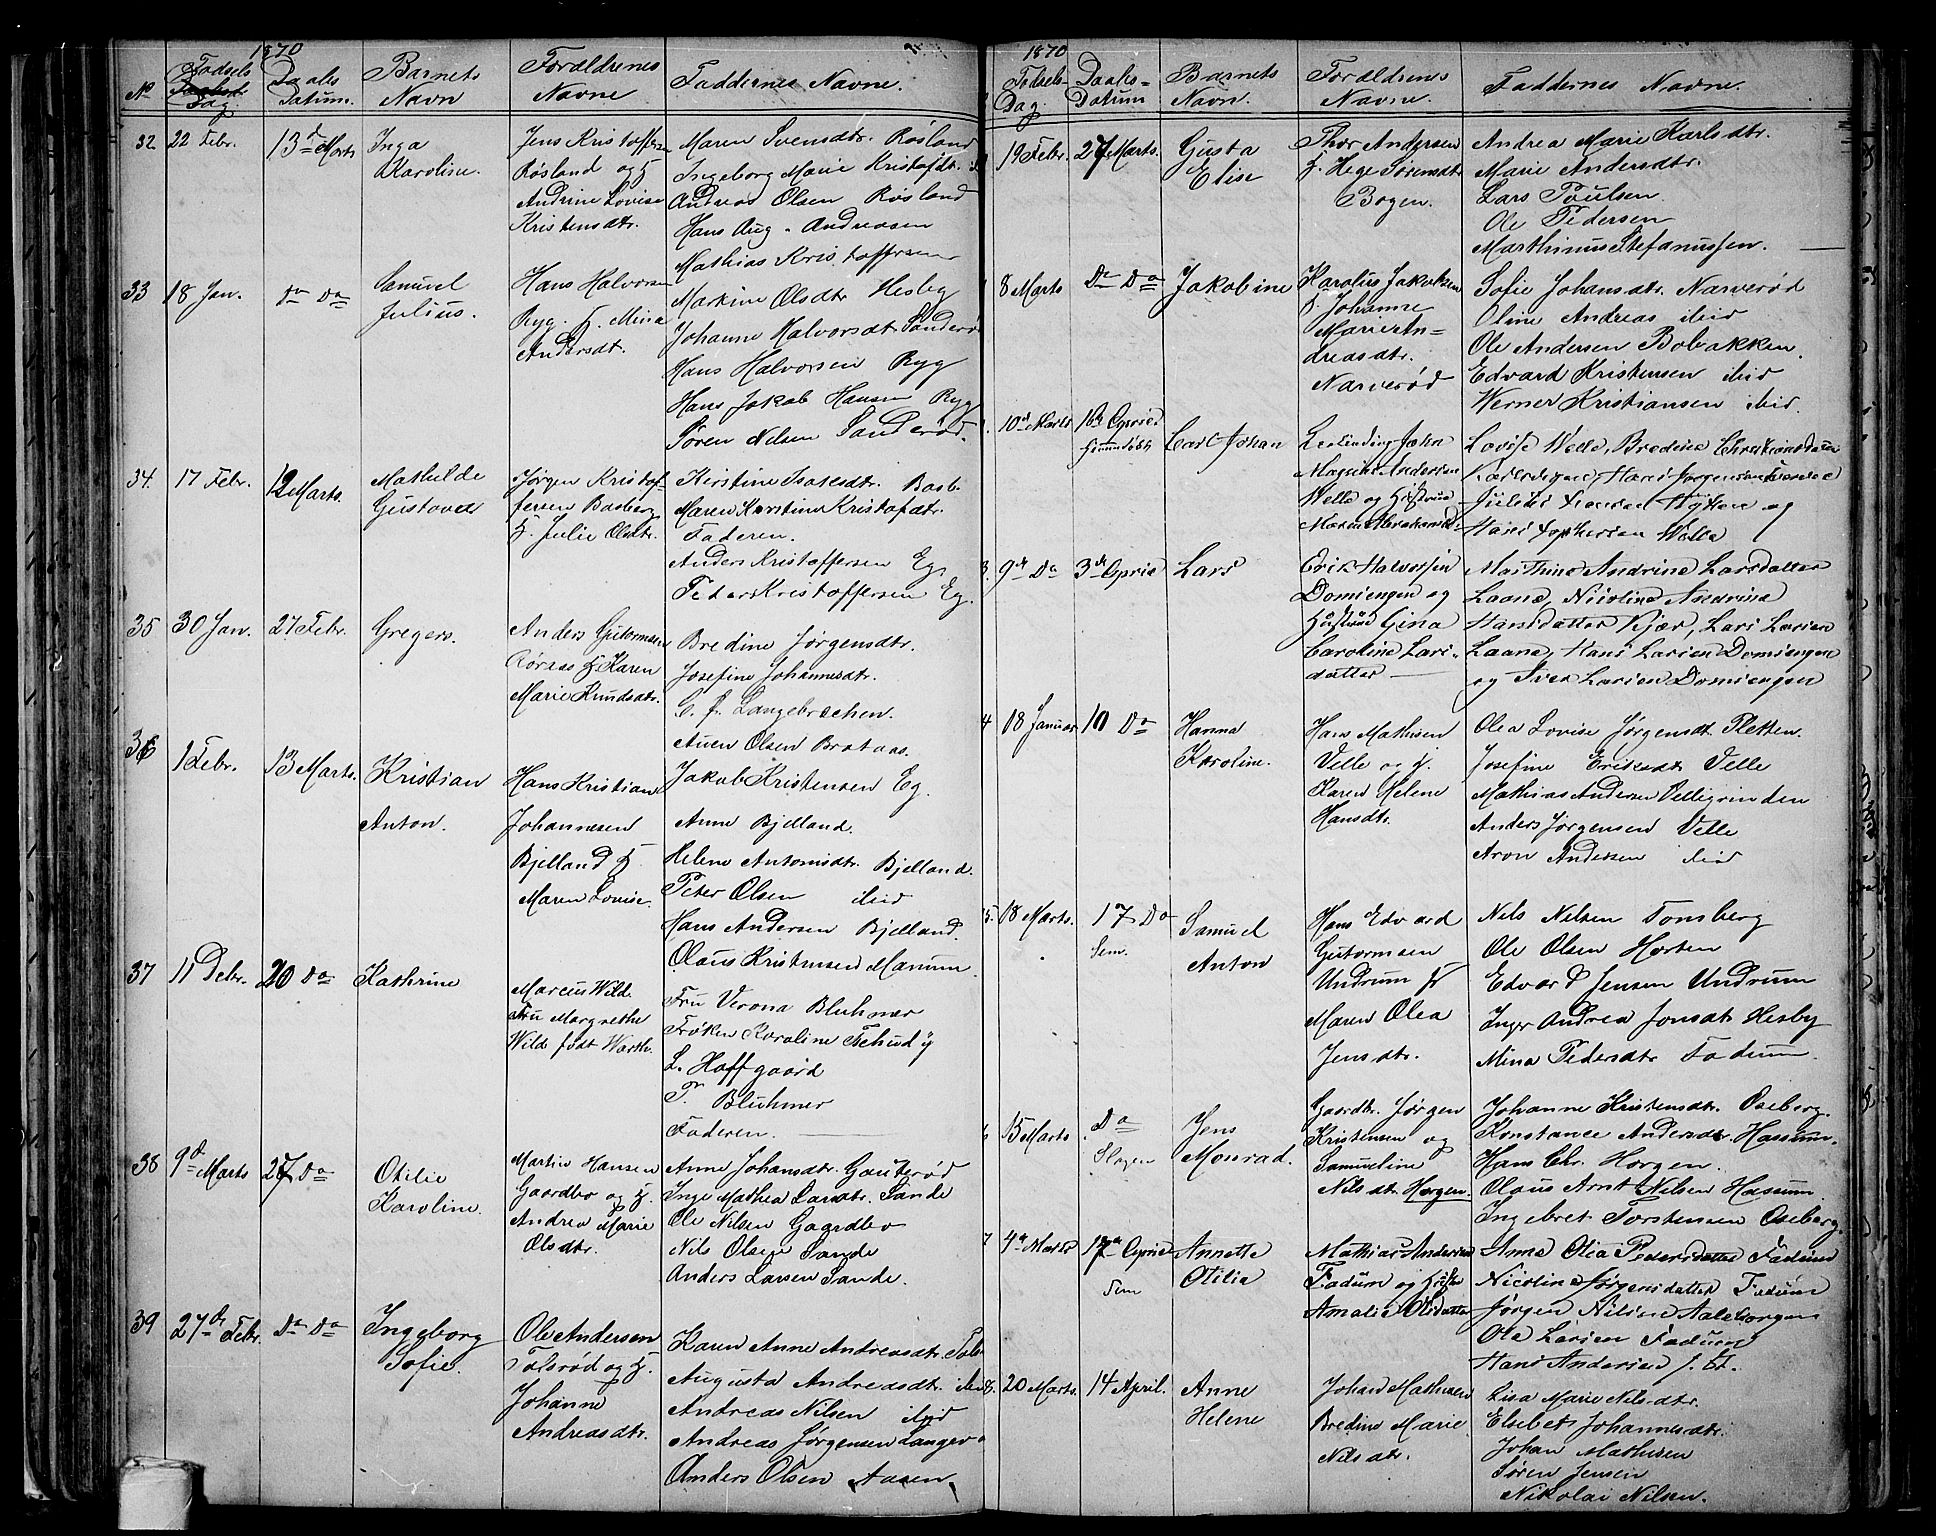 1870
No
Fødsels
Dag
Daabs
Datum.
Barnets
Navn
Forældrenes
Navne
Faddernes Navne.
32
22 Febr.
13de Marts
Inga
Karoline.
Jens Kristoffersen
Røsland og H.
Andrine Lovise
Kristensdtr.
Maren Svensdtr. Røsland
Ingeborg Marie Kristofdtr.
Andreas Olsen Røsland
Hans Aug. Andreasen
Mathias Kristoffersen
33
18 Jan.
Do Do
Samuel
Julius.
Hans Halvorsen
Ryg. H. Mina
Andersdt.
Martine Olsdtr Hesby
Johanne Halvorsdt. Sanderø
Hans Halvorsen Ryg
Hans Jakob Hansen Ryg
Søren Nilsen Sanderød.
34.
17 Febr.
12 Marts.
Mathilde
Gustava
Jørgen Kristof-
fersen Basberg
H. Julie Olsdtr.
Kirstine Isaksdtr. Basb.
Maren Kirstine Kristofdtr.
Faderen.
Anders Kristoffersen Eg.
Peder Kristoffersen Eg.
35
30 Jan.
27 Febr.
Gregers.
Anders Guttormsen
Røraas H. Karen
Marie Knudsdtr.
Bredine Jørgensdtr.
Josefine Johannesdtr.
C. f. Langebrechen.
Auen Olsen Brataas.
36
1 Febr.
13 Marts.
Kristian
Anton.
Hans Kristian
Johannesen
Bjelland H.
Maren Lovise.
Jakob Kristensen Eg.
Anne Bjelland.
Helene Antonisdtr. Bjelland.
Peter Olsen ibid
Hans Andersen Bjelland.
Olaus Kristensen Manum.
37
11 Debr.
20 Do
Kathrine
Marcus Wild
Fru Margrethe
Wild født Warth.
Fru Verona Bluhmer
Frøken Karoline Tschudy
L. Hoffgaard
T. Bluhmer
Faderen.
38
9de Marts
27 Do
Otilie
Karoline.
Martin Hansen
Gaardbo og H.
Andrea Marie
Olsdtr.
Anne Johansdtr. Gauterød
Inge Mathea Larsdtr. Sande
Ole Nilsen Gaardbo
Nils Olsen Sande
Anders Larsen Sande.
39
27de Febr.
Do Do
Ingeborg
Sofie.
Ole Andersen
Tolsrød og H.
Johanne
Andreasdtr.
Karen Anne Andreasdtr. Tols
Augusta Andreasdtr. ibid
Andreas Nilsen ibid
Andreas Jørgensen Langevo
Anders Olsen Aasen.
1870
Fødsels-
Dag.
Daabs-
Datum
Barnets
Navn.
Forældrenes
Navne.
Faddernes Navne.
19 Febr.
27 Marts.
Gusta
Elise
Thor Andersen
H. Hege Sørensdtr
Bogen.
Andrea Marie Karlsdtr.
Marie Andersdtr.
Lars Poulsen
Ole Pedersen
Marthinus Stefanussen.
8 Marts
Do Do
Jakobine
Karolus Jakobsen
H Johanne
Marie An=
dreasdtr.
Narverød
Sofie Johansdtr. Narverød
Oline Andreas ibid
Ole Andersen Bobakken.
Edvard Kristensen ibid
Werner Kristiansen ibid.
10de Marts
10de April
Hjemmedøbt
Carl Johan
John
Magnus Andersen
Welle og Hustrue
Maren Abrahamsd.
Lovise Welle, Bredine Christiansdatter
Hans Jørgensen
og
Welle
3.
9de Do
3de April
Lars
Erik Halvorsen
Domiengen og
Hustrue Gina
Caroline Lars-
datter
Marthine Andrine Larsdatter
Laane, Nicoline Andrine
Hansdatter Kjær, Lars Larsen
Laane, Hans Larsen Domiengen
og Iver Larsen Domiengen
4
18 Januar
10 Do
Hanna
Karoline.
Hans Mathisen
Velle og H.
Karen Helene
Hansdtr.
Olea Lovise Jørgensdt. Pletten.
Josefine Eriksdtr Velle
Mathias Andersen Velligrinden
Anders Jørgensen Velle
Aron Andersen ibid
5.
18 Marts.
17 Do
Sem.
Samuel
Anton
Hans Edvard
Guttormsen
Undrum H
Maren Olea
Jensdtr.
Nils Nilsen Tønsberg
Ole Olsen Horten
Edvard Jensen Undrum
Inger Andrea Jonsdt. Hesby
Mina Pedersdtr Fadum
6
15 Marts
Do
Slagen
Jens
Monrad.
Gaardbr. Jørgen
Kristensen og
Samueline
Nilsdtr. Horgen.
Johanne Kristensdtr. Oseberg.
Konstance Andersdtr. Hassum.
Hans Chr. Horgen.
Olaus Arnt Nilsen Hassum.
Ingebret Torstensen Oseberg.
7
4de Marts
17de April
Sem
Annette
Otilia
Mathias Andersen
Fadum og Hustru
Amalie Olsdatter
Anne Olia Pedersdatter Fadum
Nicoline Jørgensdatter Fadum
Jørgen Nilsen Aaleborgen
Ole Larsen Fadum
Hans Andersen
8.
20 Marts.
14 April.
Anne
Helene
Johan Mathisen
Bredine Marie
Nilsdtr.
Lisa Marie Nilsdtr.
Elsebet Johannesdtr.
Johan Mathisen
Søren Jensen
Nikolai Nilsen.